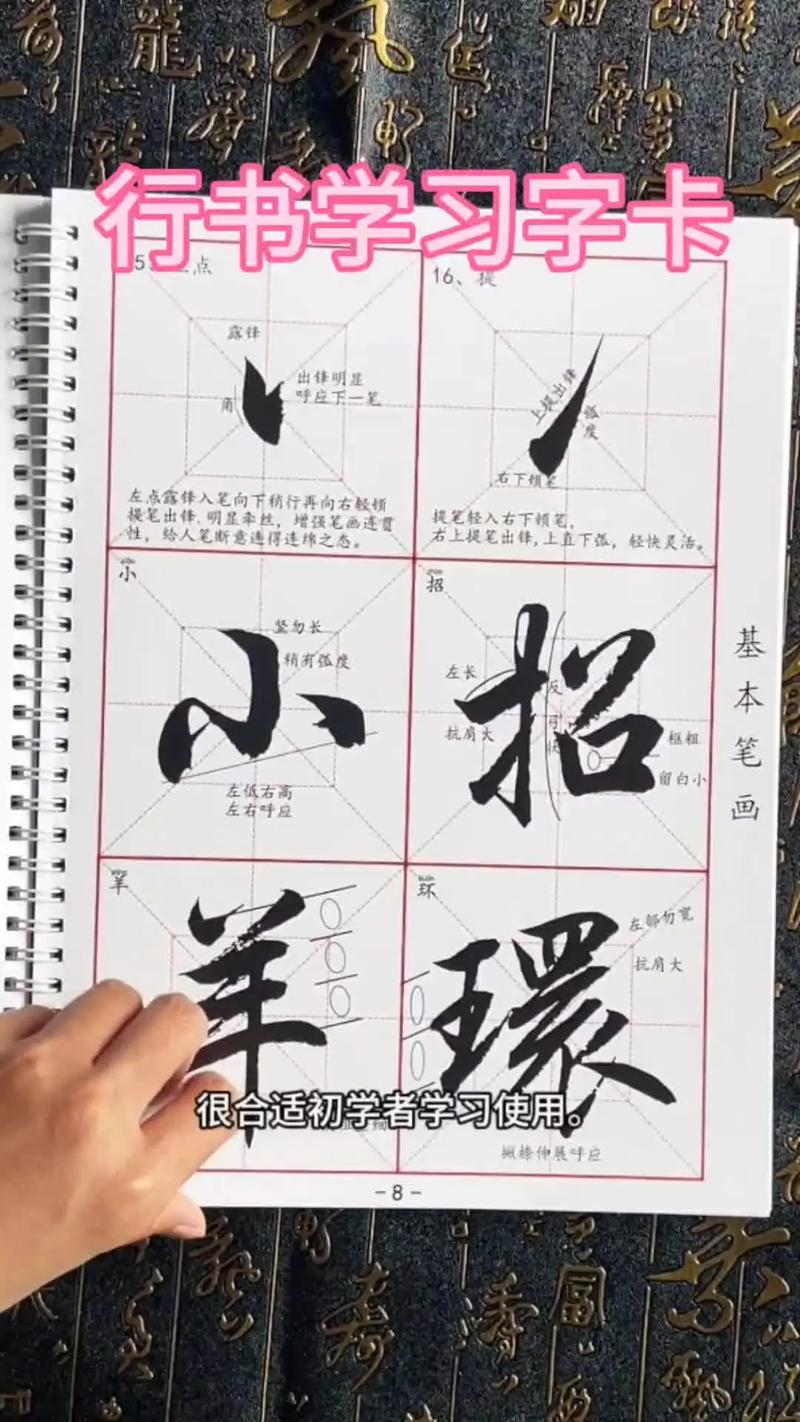 行书学习字卡
点
16、提
露锋
角
出锋明显
呼应下一笔
左点露锋入笔向下稍行再向右轻顿
提笔出锋.明显牵丝，增强笔画连贯
性，给人笔断意连得连绵之态。
上提出锋
弧度
右下顿笔
提笔轻入右下顿笔，
右上提笔出锋,上直下弧，轻快灵活。
小
竖勿长
稍有弧度
小
左低右高
左右呼应
招
左长
抗肩大
招
框粗
留白小
基本笔画
羊
羊
环
左部勿宽
抗肩大
環
撇捺伸展呼应
很合适初学者学习使用。
-8-